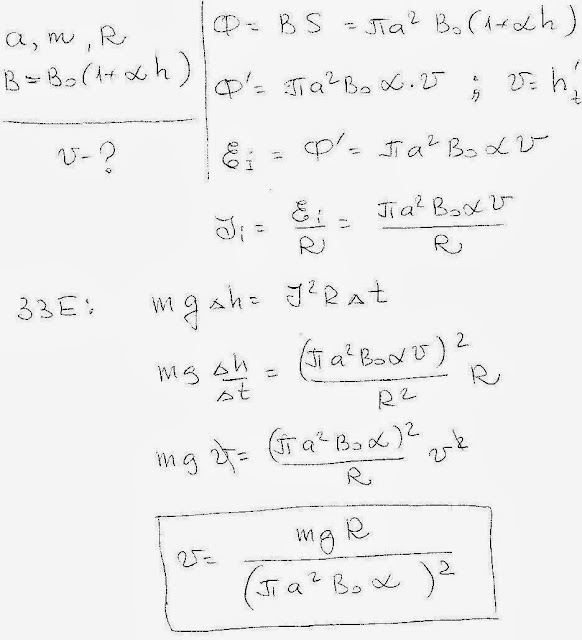 a, m, R
B = B₀(1+αh)
v - ?
Φ = BS = πa² B₀(1+αh)
Φ' = πa²B₀α·v ; v = h'ₜ
ℰᵢ = Φ' = πa²B₀αv
Jᵢ = ℰᵢ/R = πa²B₀αv/R
ЗЗЕ: mgΔh = J²RΔt
mg Δh/Δt = (πa²B₀αv)²/R² R
mg v = (πa²B₀α)²/R v²
v = mgR/(πa²B₀α)²